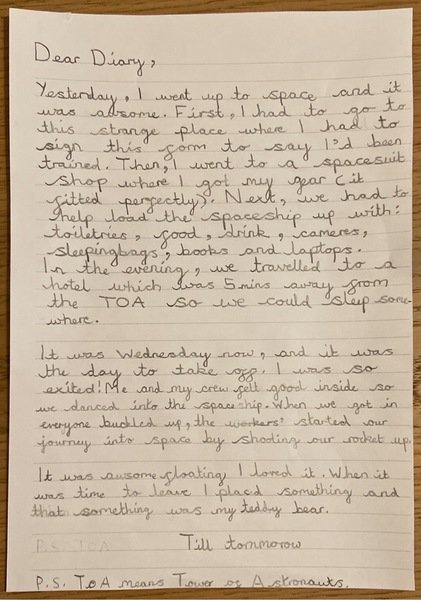 Dear Diary,
Yesterday, I went up to space and it
was awsome. First, I had to go to
this strange place where I had to
sign this form to say I'd been
trained. Then, I went to a spacesuit
shop where I got my gear (it
fitted perfectly). Next, we had to
help load the spaceship up with:
toiletries, food, drink, cameres,
sleepingbags, books and laptops.
In the evening, we travelled to a
hotel which was 5mins away from
the TOA so we could sleep some-
where.
It was Wednesday now, and it was
the day to take off. I was so
exited! Me and my crew felt good inside so
we danced into the spaceship. When we got in
everyone buckled up, the workers' started our
journey into space by shooting our rocket up.
It was awsome floating I loved it. When it
was time to leave I placd something and
that something was my teddy bear.
P.S. TOA
Till tommorow
P.S. TOA means Tower of Astronauts.